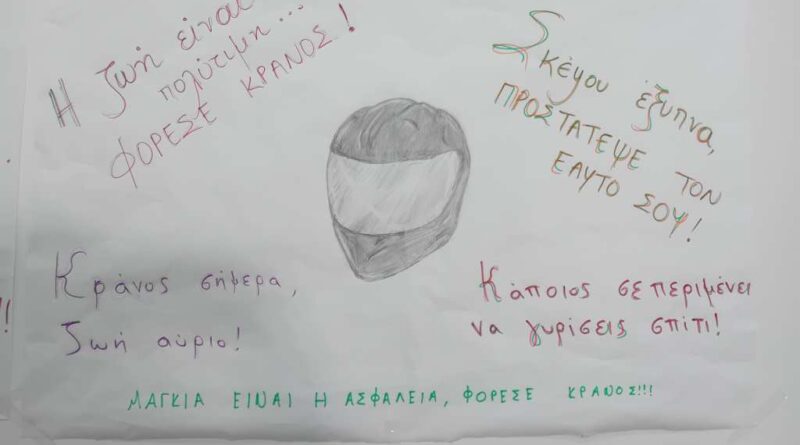 Η ζωή είναι
πολύτιμη...
ΦΟΡΕΣΕ ΚΡΑΝΟΣ!
Σκέψου έξυπνα,
ΠΡΟΣΤΑΤΕΨΕ ΤΟΝ
ΕΑΥΤΟ ΣΟΥ!
Κράνος σήμερα,
ζωή αύριο!
Κάποιος σε περιμένει
να γυρίσεις σπίτι!
ΜΑΓΚΙΑ ΕΙΝΑΙ Η ΑΣΦΑΛΕΙΑ, ΦΟΡΕΣΕ ΚΡΑΝΟΣ!!!